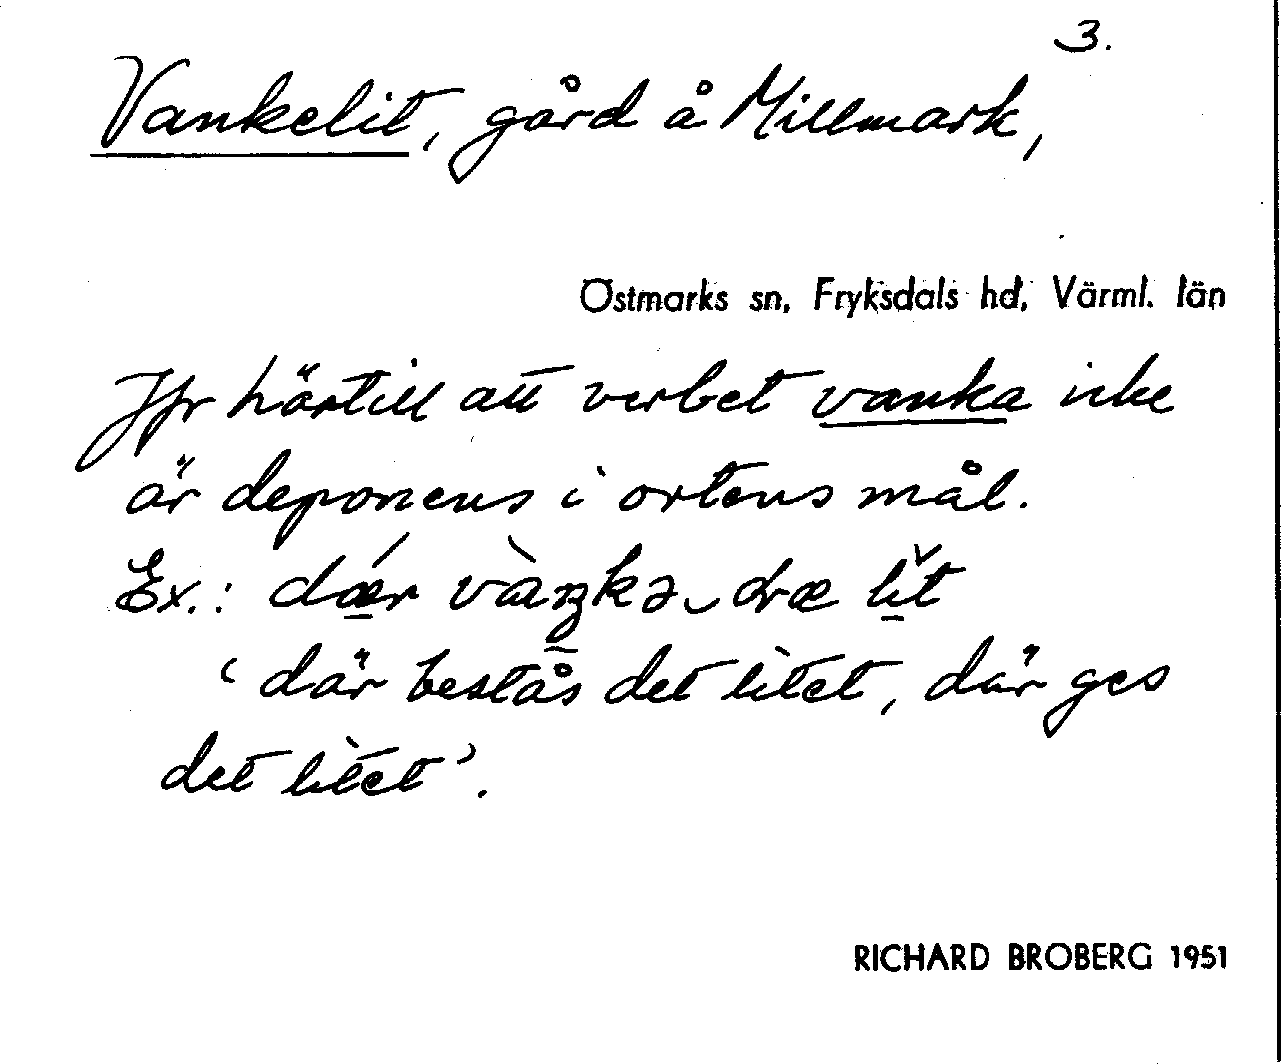 3.
Vankelit, gård å Millmark,
Östmarks sn, Fryksdals hd, Värml. län
Jfr härtill att verbet vanka icke
är deponens i ortens mål.
Ex.: dǽr vàŋkə‿dræ lĭt
‘där bestås det litet, där ges
det litet’.
RICHARD BROBERG 1951